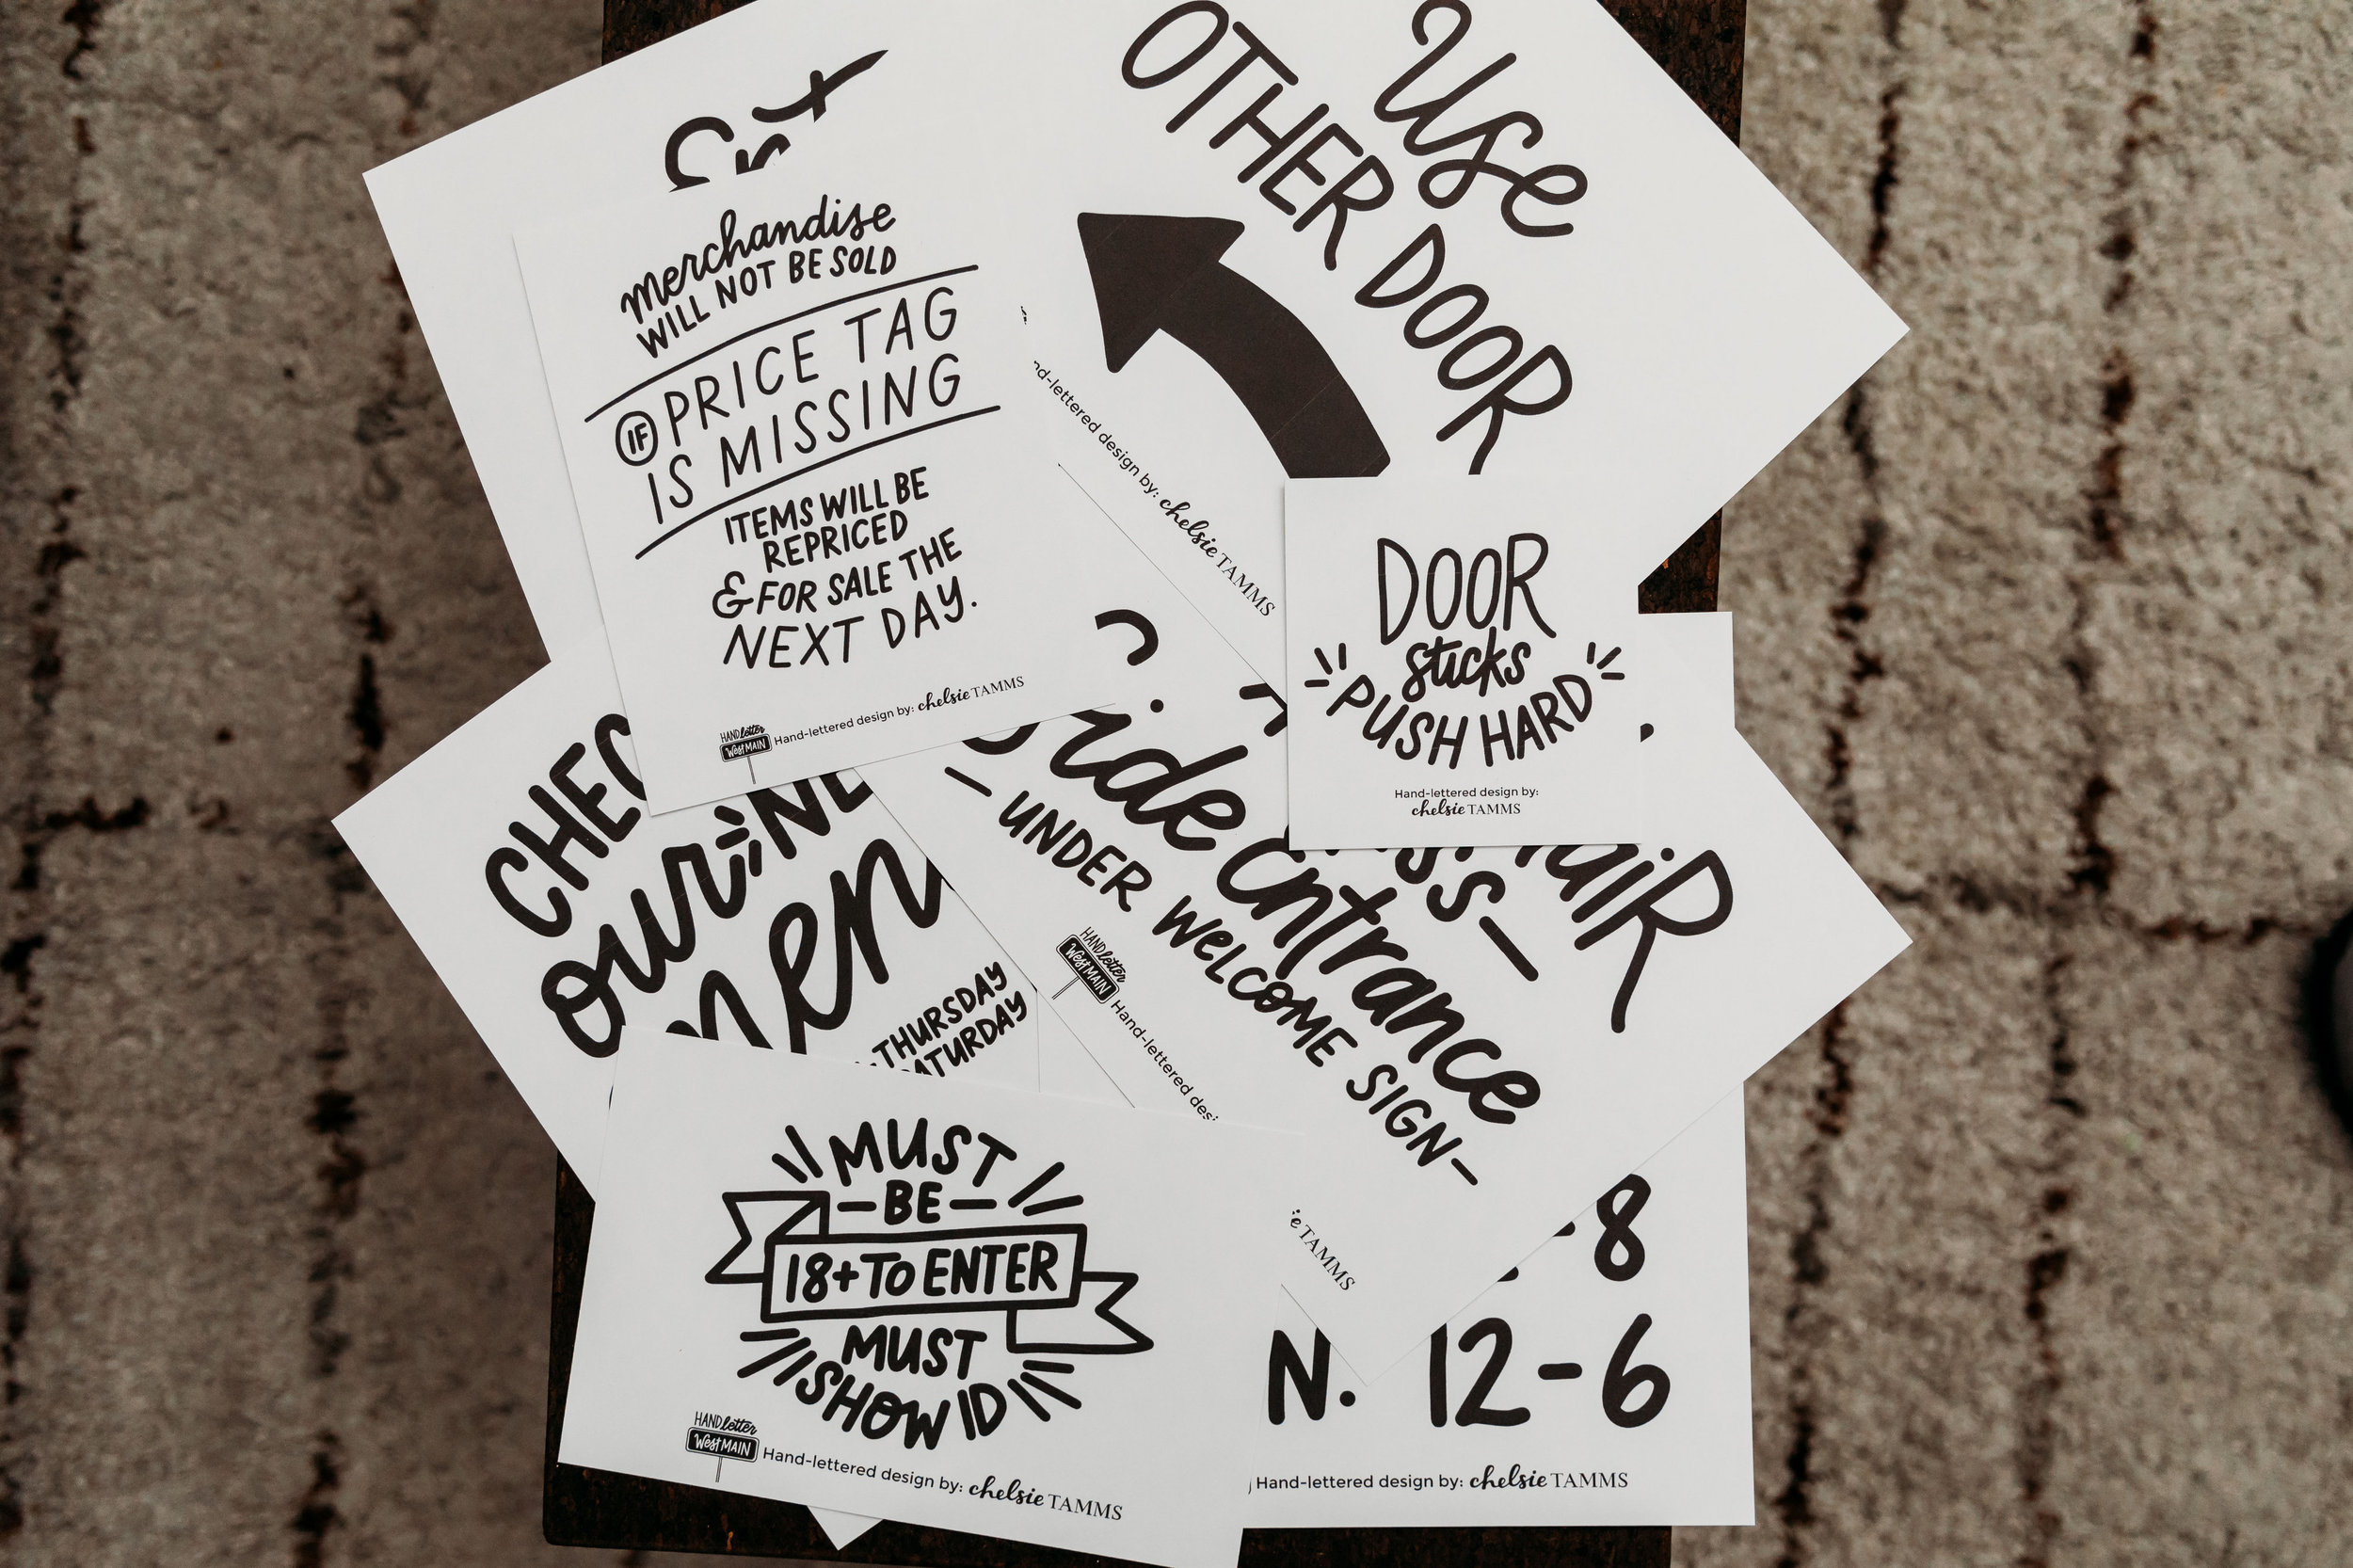 Use
OTHER DOOR
merchandise
WILL NOT BE SOLD
IF PRICE TAG
IS MISSING
ITEMS WILL BE
REPRICED
& FOR SALE THE
NEXT DAY.
HAND letter
West MAIN
Hand-lettered design by: chelsie TAMMS
nd-lettered design by: chelsie TAMMS
DOOR
sticks
PUSH HARD
Hand-lettered design by:
chelsie TAMMS
CHEC
our NE
men
THURSDAY
ATURDAY
Side Entrance
- UNDER WELCOME SIGN -
HAND letter
West MAIN
Hand-lettered desi
TAMMS
MUST
- BE -
18+ TO ENTER
MUST
SHOW ID
HAND letter
West MAIN
Hand-lettered design by: chelsie TAMMS
8
N. 12-6
Hand-lettered design by: chelsie TAMMS